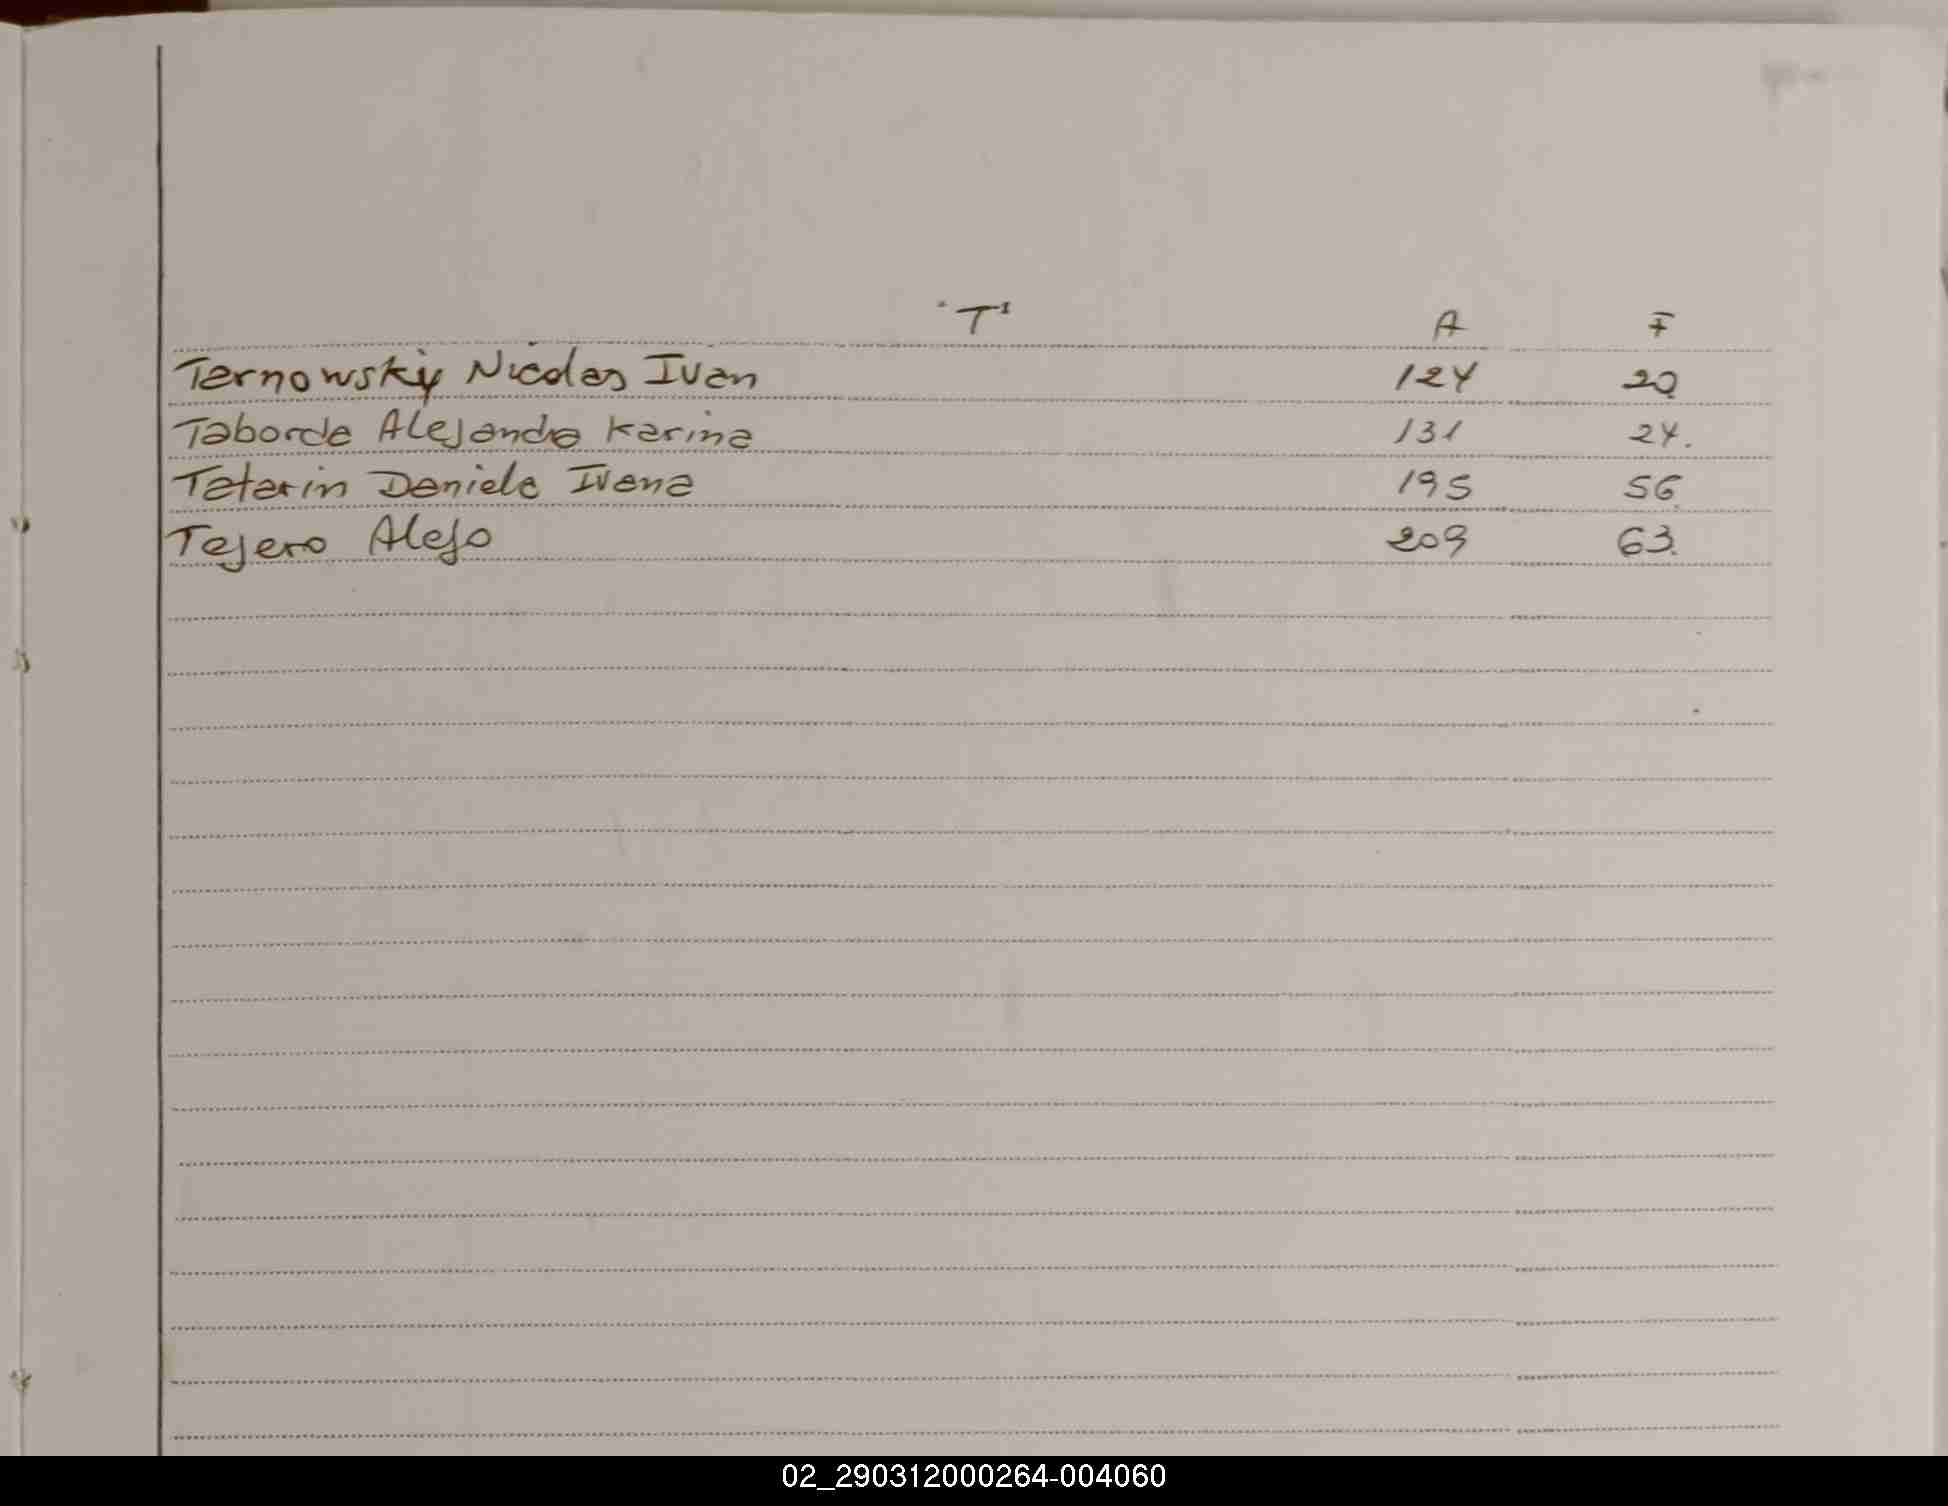 "T" A F
Ternowsky Nicolas Ivan 124 20
Taborda Alejandra Karina 131 24.
Tatarin Daniela Ivana 195 56
Tejero Alejo 209 63.
02_290312000264-004060